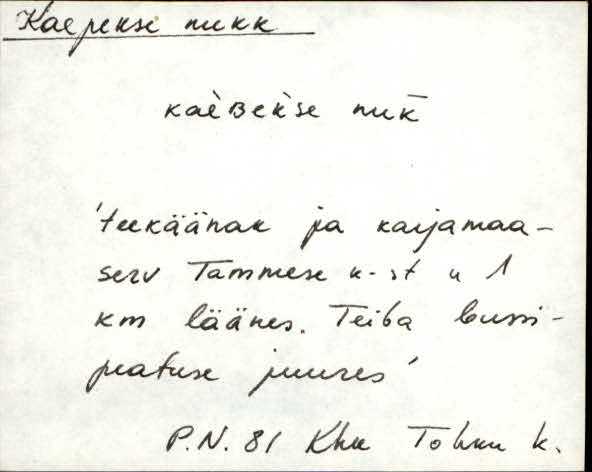 Kaepekse nukk
kaèBekse nuk̄
'teekäänak ja karjamaa-
serv Tammese k-st u 1
km läänes. Teiba bussi-
peatuse juures'
P.N. 81 Khn Tohvu k.